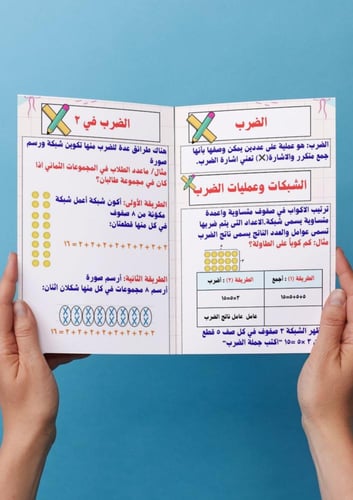 الضرب
الضرب: هو عملية على عددين يمكن وصفها بأنها
جمع متكرر والاشارة(×) تعني اشارة الضرب.
الشبكات وعمليات الضرب
ترتيب الاكواب في صفوف متساوية واعمدة
متساوية يسمى شبكة.الاعداد التي يتم ضربها
تسمى عوامل والعدد الناتج يسمى ناتج الضرب
مثال: كم كوباً على الطاولة؟
الطريقة (١) : أجمع
الطريقة (٢) : أضرب
٥+٥+٥=١٥
٣×٥=١٥
عامل عامل ناتج الضرب
ظهر الشبكة ٣ صفوف في كل صف ٥ قطع
٣ ×٥ =١٥ "اكتب جملة الضرب"
الضرب في ٢
هناك طرائق عدة للضرب منها تكوين شبكة ورسم
صورة
مثال/ ماعدد الطلاب في المجموعات الثماني اذا
كان في مجموعة طالبان؟
الطريقة الأولى: أكون شبكة أعمل شبكة
مكونة من ٨ صفوف
في كل منها قطعتان:
٢+٢+٢+٢+٢+٢+٢+٢= ١٦
الطريقة الثانية: أرسم صورة
أرسم ٨ مجموعات في كل منها شكلان اثنان:
٢+٢+٢+٢+٢+٢+٢+٢= ١٦